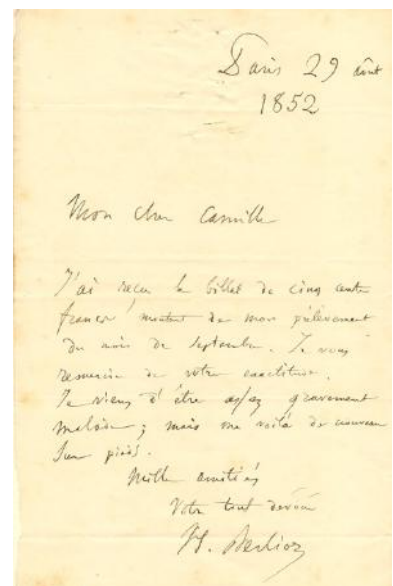 Paris 29 août
1852
Mon cher Camille
J'ai reçu le billet de cinq cents
francs montant de mon prélèvement
du mois de septembre. Je vous
remercie de votre exactitude.
Je viens d'être assez gravement
malade ; mais me voilà de nouveau
sur pieds.
Mille amitiés
Votre tout dévoué
H. Berlioz